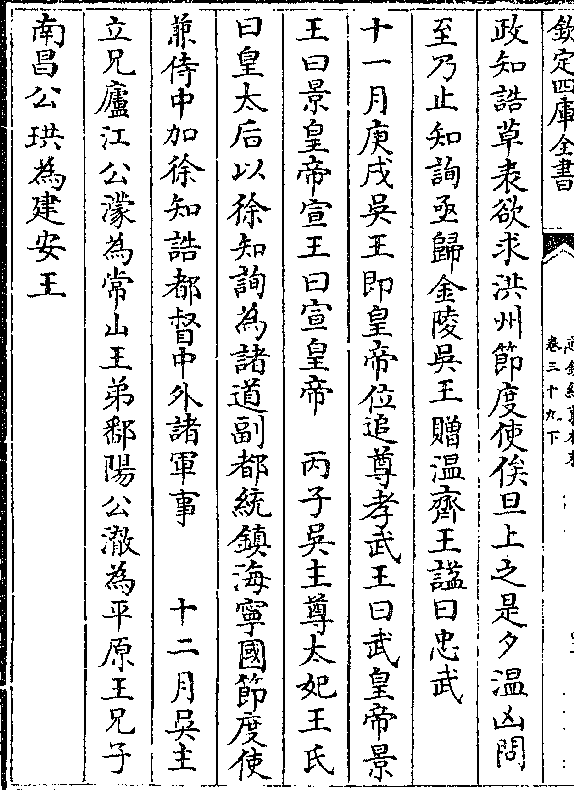 欽定四庫全書
卷三十九下
政知誥草表欲求洪州節度使俟旦上之是夕溫凶問
至乃止知詢亟歸金陵吳王贈溫齊王謚曰忠武
十一月庚戌吳王即皇帝位追尊孝武王曰武皇帝景
王曰景皇帝宣王曰宣皇帝　丙子吳主尊太妃王氏
曰皇太后以徐知詢為諸道副都統鎮海寧國節度使
兼侍中加徐知誥都督中外諸軍事　　十二月吳主
立兄廬江公濛為常山王弟鄱陽公澈為平原王兄子
南昌公珙為建安王